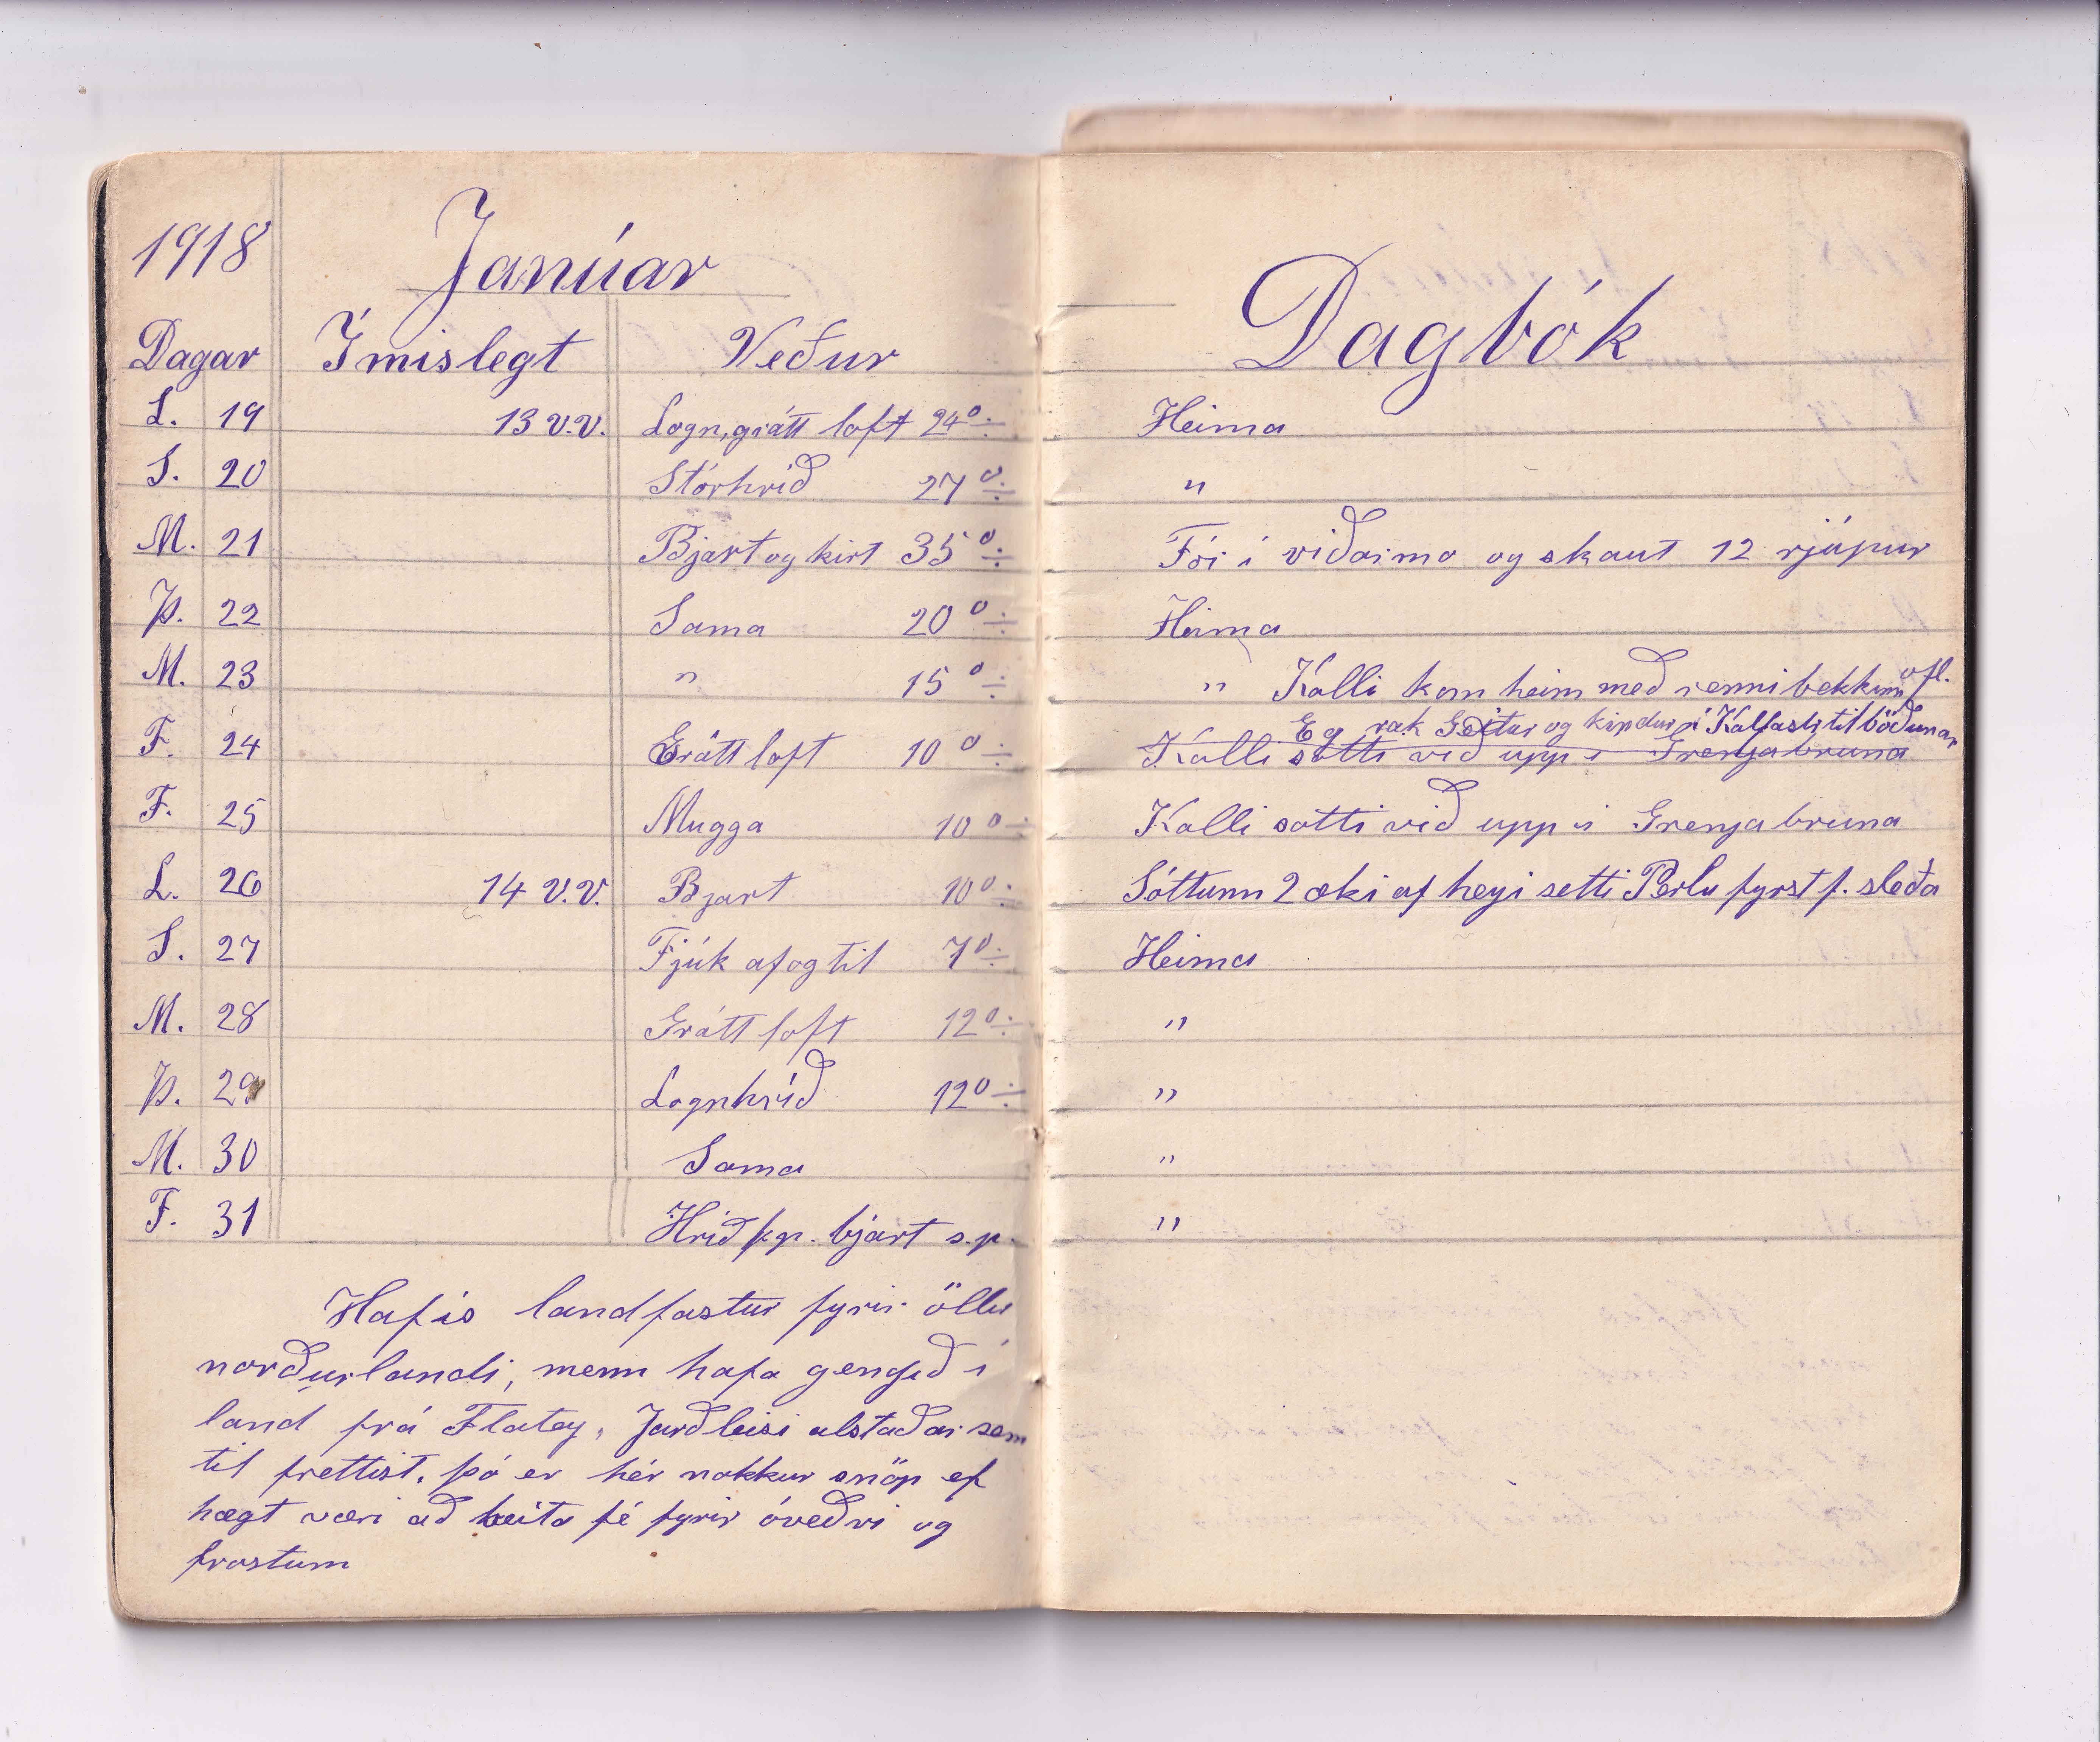 1918 Janúar
Dagbók
Dagar Ímislegt Veður
L. 19 13 V.V. Logn, grátt loft 24° ÷ Heima
S. 20 Stórhríð 27° ÷ "
M. 21 Bjart og kirt 35° ÷ Fór í viðarmo og skaut 12 rjúpur
Þ. 22 Sama 20° ÷ Heima
M. 23 " 15° ÷ " Kalli kom heim með rennibekkinn ofl.
Eg rak Geitur og kindur í Kalfastr. til böðunar
F. 24 Grátt loft 10° ÷ Kalli sotti við upp í Grenjabruna
F. 25 Mugga 10° ÷ Kalli sotti við upp í Grenjabruna
L. 26 14 V.V. Bjart 10° ÷ Sóttum 2 æki af heyi setti Perlu fyrst f. sleða
S. 27 Fjúk af og til 7° ÷ Heima
M. 28 Grátt loft 12° ÷ "
Þ. 29 Lognhríð 12° ÷ "
M. 30 Sama "
F. 31 Hríð f.p. bjart s.p. "
Hafís landfastur fyrir öllu
norðurlandi, menn hafa gengið í
land frá Flatey, Jarðleisi alstaðar sem
til frettist. þó er hér nokkur snöp ef
hægt væri að beita fé fyrir óveðri og
frostum